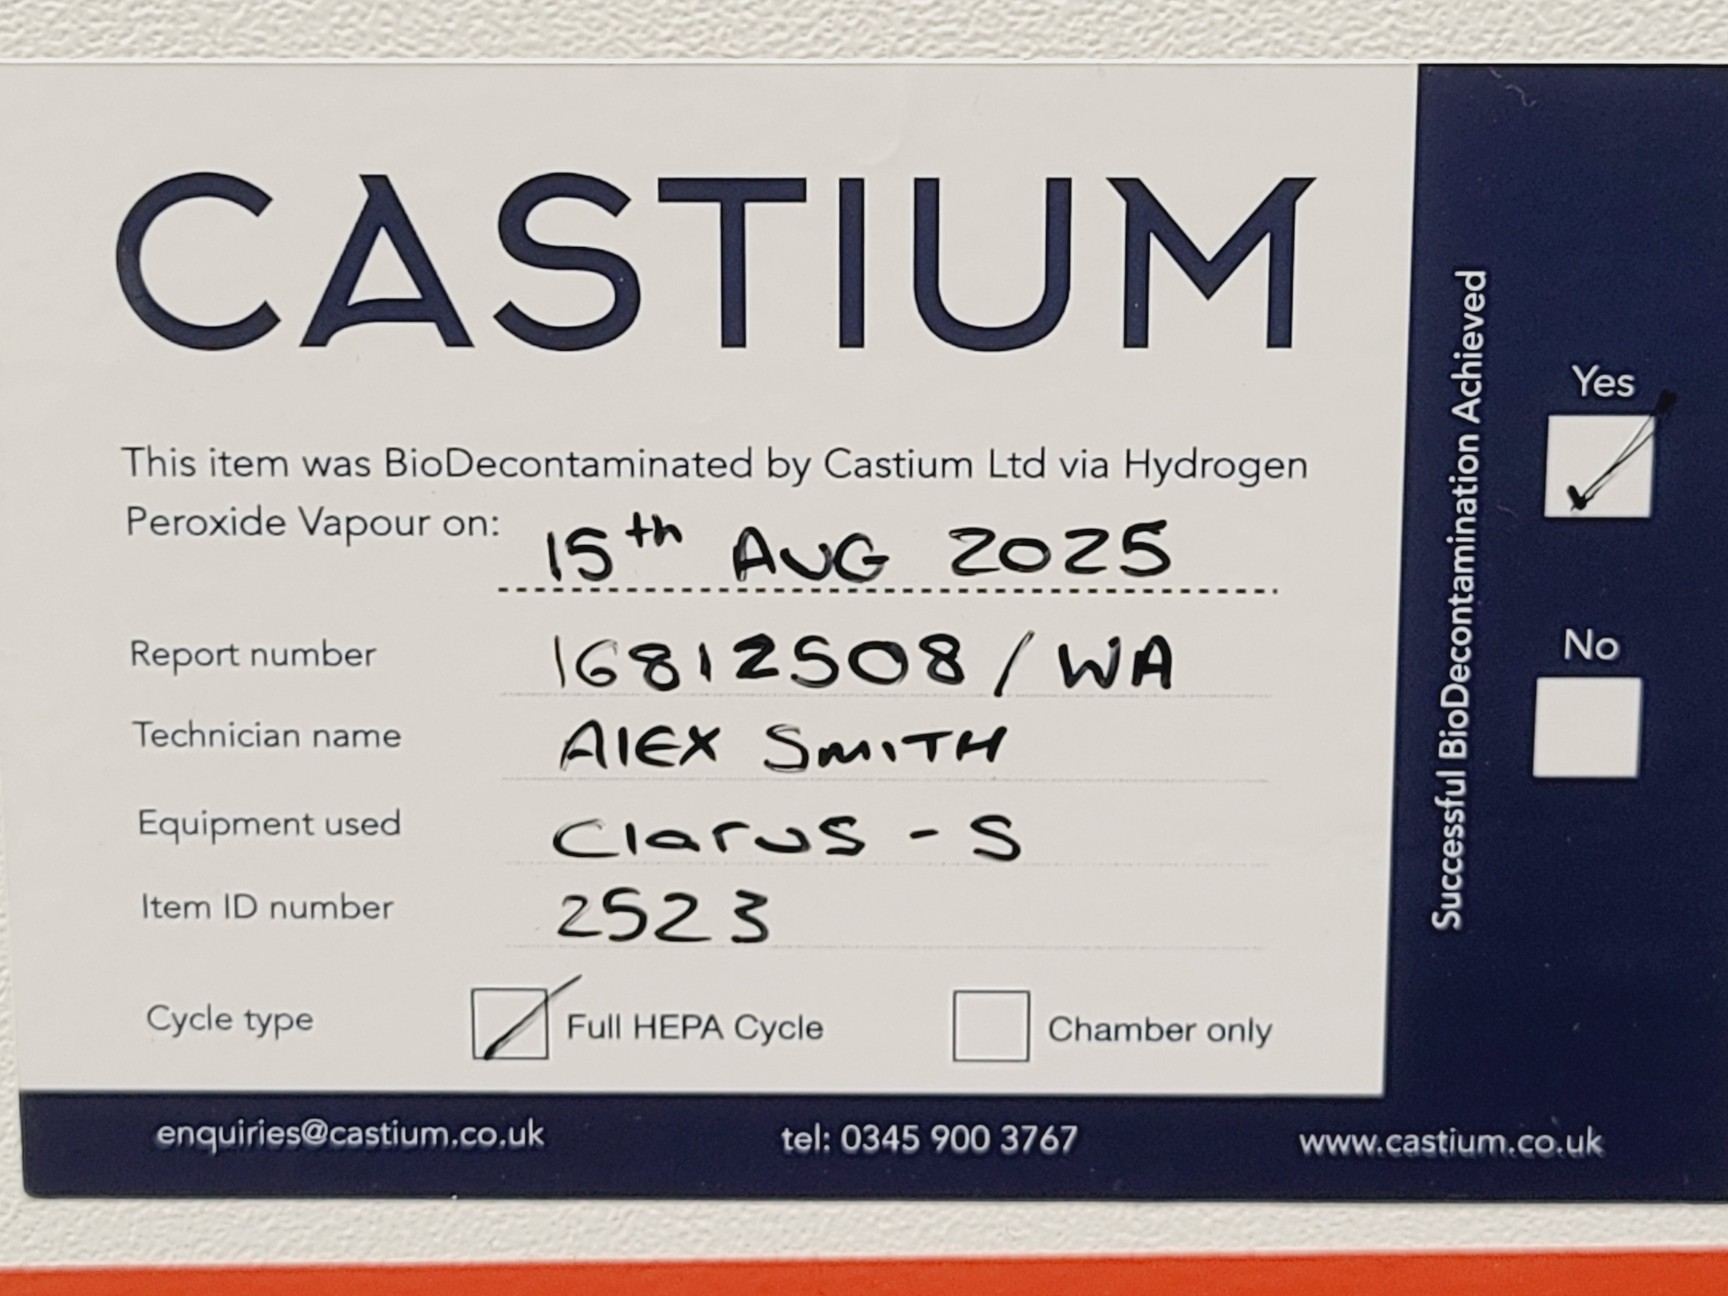 CASTIUM
This item was BioDecontaminated by Castium Ltd via Hydrogen
Peroxide Vapour on: 15th AUG 2025
Report number 16812508/WA
Technician name AlEX SMITH
Equipment used Clarus - S
Item ID number 2523
Cycle type Full HEPA Cycle Chamber only
Successful BioDecontamination Achieved
Yes
No
enquiries@castium.co.uk tel: 0345 900 3767 www.castium.co.uk